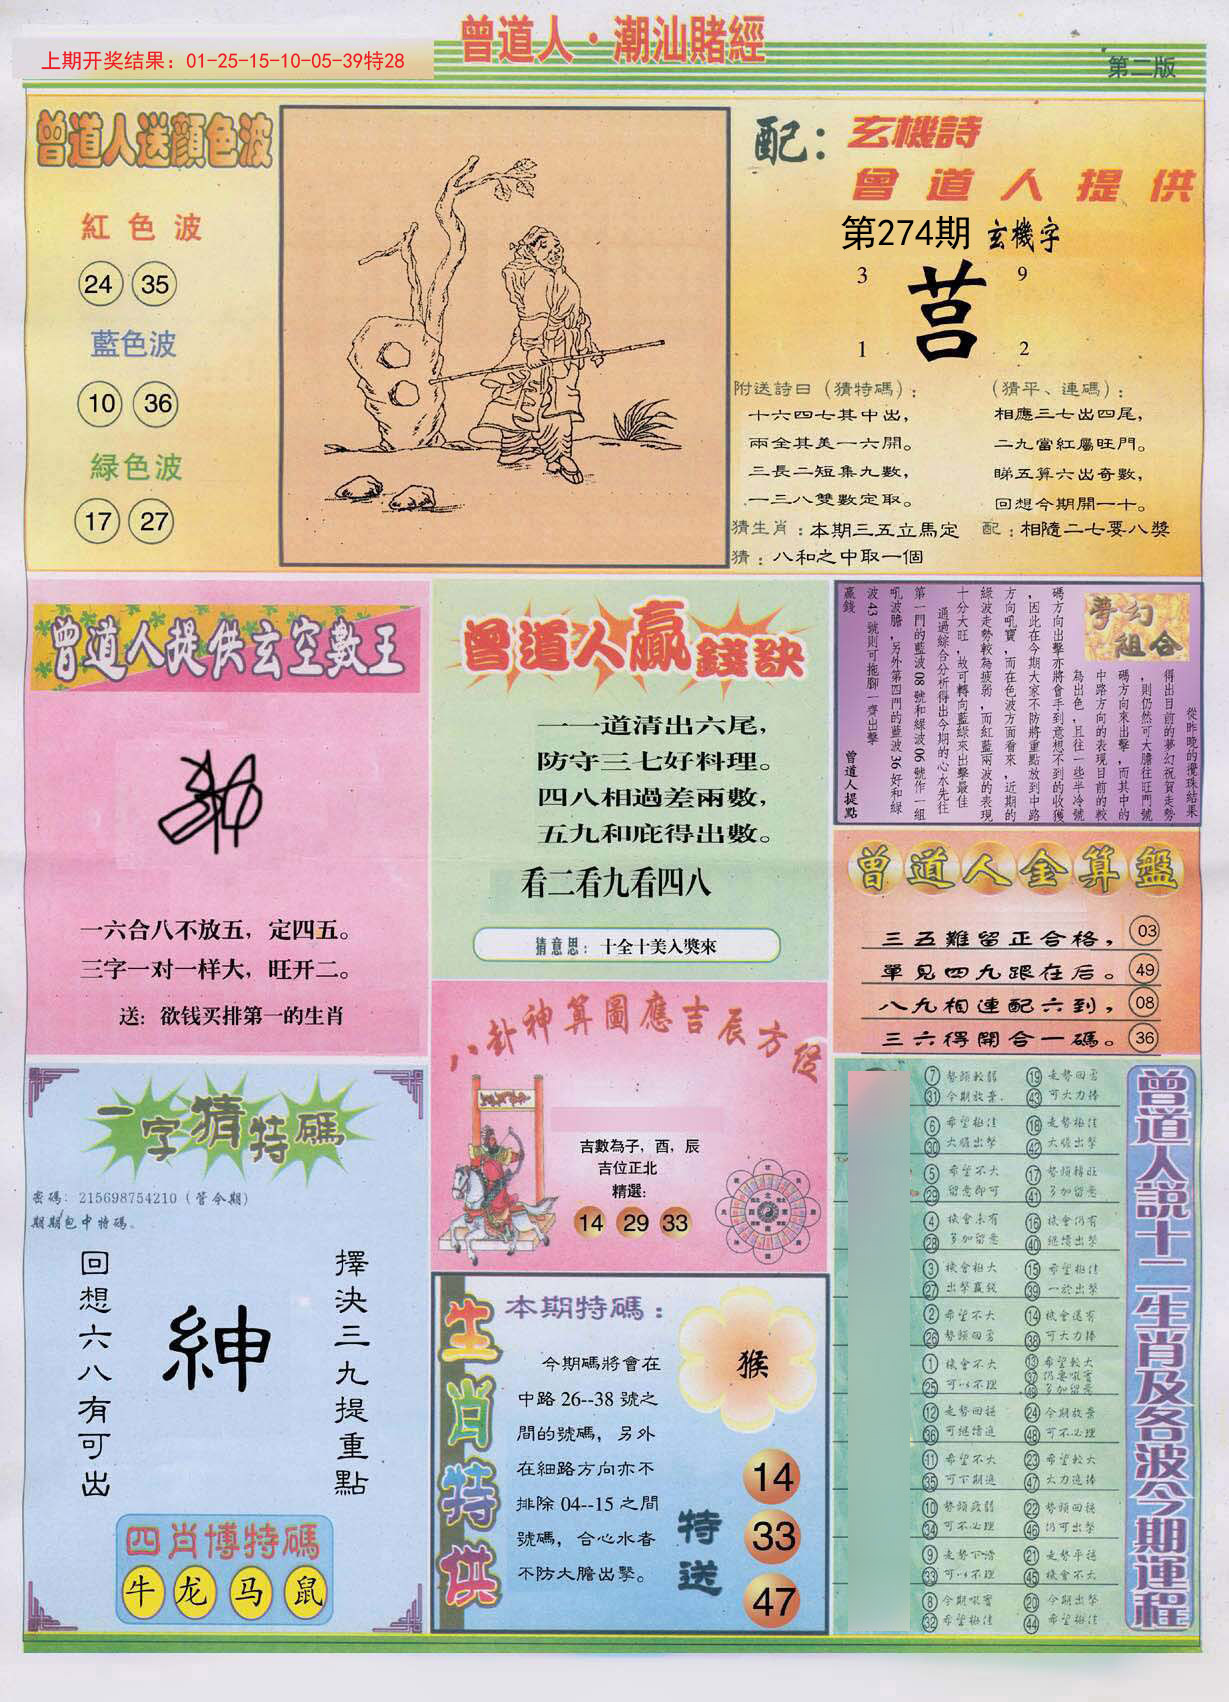 曾道人·潮汕賭經
上期开奖结果：01-25-15-10-05-39特28
第二版
曾道人送顏色波
紅色波
24 35
藍色波
10 36
緑色波
17 27
配：玄機詩
曾道人提供
第274期 玄機字
3 9
莒
1 2
附送詩日（猜特碼）：
十六四七其中出，
兩全其美一六開。
三長二短集九數，
一三八雙數定取。
（猜平、連碼）：
相應三七出四尾，
二九當紅屬旺門。
睇五算六出奇數，
回想今期開一十。
猜生肖：本期三五立馬定
配：相隨二七要八獎
猜：八和之中取一個
曾道人提供玄空數王
一六合八不放五，定四五。
三字一对一样大，旺开二。
送：欲钱买排第一的生肖
曾道人贏錢訣
一一道清出六尾，
防守三七好料理。
四八相過差兩數，
五九和庇得出數。
看二看九看四八
猜意思：十全十美入獎來
夢幻組合
從昨晚的攪珠結果
得出目前的夢幻祝賀走勢
，則仍然可大膽往旺門號
碼方向來出擊，而其中的
中路方向的表現目前的較
為出色，且往一些半冷號
碼方向出擊亦將會手到意想不到的收獲
，因此在今期大家不防將重點放到中路
方向吼寶，而在色波方面看來，近期的
綠波走勢較為疲弱，而紅藍兩波的表現
十分大旺，故可轉向藍綠來出擊最佳
通過綜合分析得出今期的心水先往
第一門的藍波08號和綠波06號作一組
吼波膽，另外第四門的藍波36好和綠
波43號則可拖腳一齊出擊
贏錢
曾道人提點
曾道人金算盤
三五難留正合格， 03
單見四九跟在后。 49
八九相連配六到， 08
三六得開合一碼。 36
八卦神算圖應吉辰方位
吉數為子，酉，辰
吉位正北
精選：
14 29 33
一字猜特碼
密碼：215698754210（管今期）
期期包中特碼。
回想六八有可出
紳
擇決三九提重點
四肖博特碼
牛 龙 马 鼠
生肖特供
本期特碼：
今期碼將會在
中路26--38 號之
間的號碼，另外
在細路方向亦不
排除04--15 之間
號碼，合心水者
不防大膽出擊。
猴
特送
14
33
47
曾道人説十二生肖及各波今期運程
7 勢頭較弱 19 走勢回勇
31 今期放棄 43 可大力捧
6 希望極佳 18 走勢極佳
30 大膽出擊 42 大膽出擊
5 希望不大 17 勢頭轉旺
29 留意即可 41 多加留意
4 機會未有 16 機會仍有
28 多加留意 40 繼續出擊
3 機會極大 15 希望極佳
27 出擊贏錢 39 一於出擊
2 希望不大 14 機會還有
26 勢頭回勇 38 可大力捧
1 機會不大 13 希望較大
25 可以不理 37 仍要吼實
49 多加留意
12 走勢回穩 24 今期放棄
36 可繼續追 48 可不必理
11 希望不大 23 希望較大
35 可下期追 47 大力追捧
10 勢頭疲弱 22 勢頭回穩
34 可不必理 46 仍可出擊
9 走勢下滑 21 走勢平穩
33 可以不理 45 機會不大
8 今期吼實 20 今期出擊
32 希望極佳 44 希望極佳